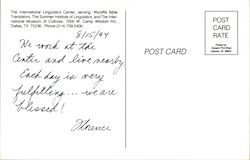 The International Linguistics Center, serving: Wycliffe Bible
Translators, The Summer Institute of Linguistics, and The Inter-
national Museum of Cultures, 7500 W. Camp Wisdom Rd.,
Dallas, TX 75236. Phone (214) 709-2400
8/15/94
We work at the
Center and live nearby.
Each day is very
fulfilling... we are
blessed!
Florence
POST CARD
POST
CARD
RATE